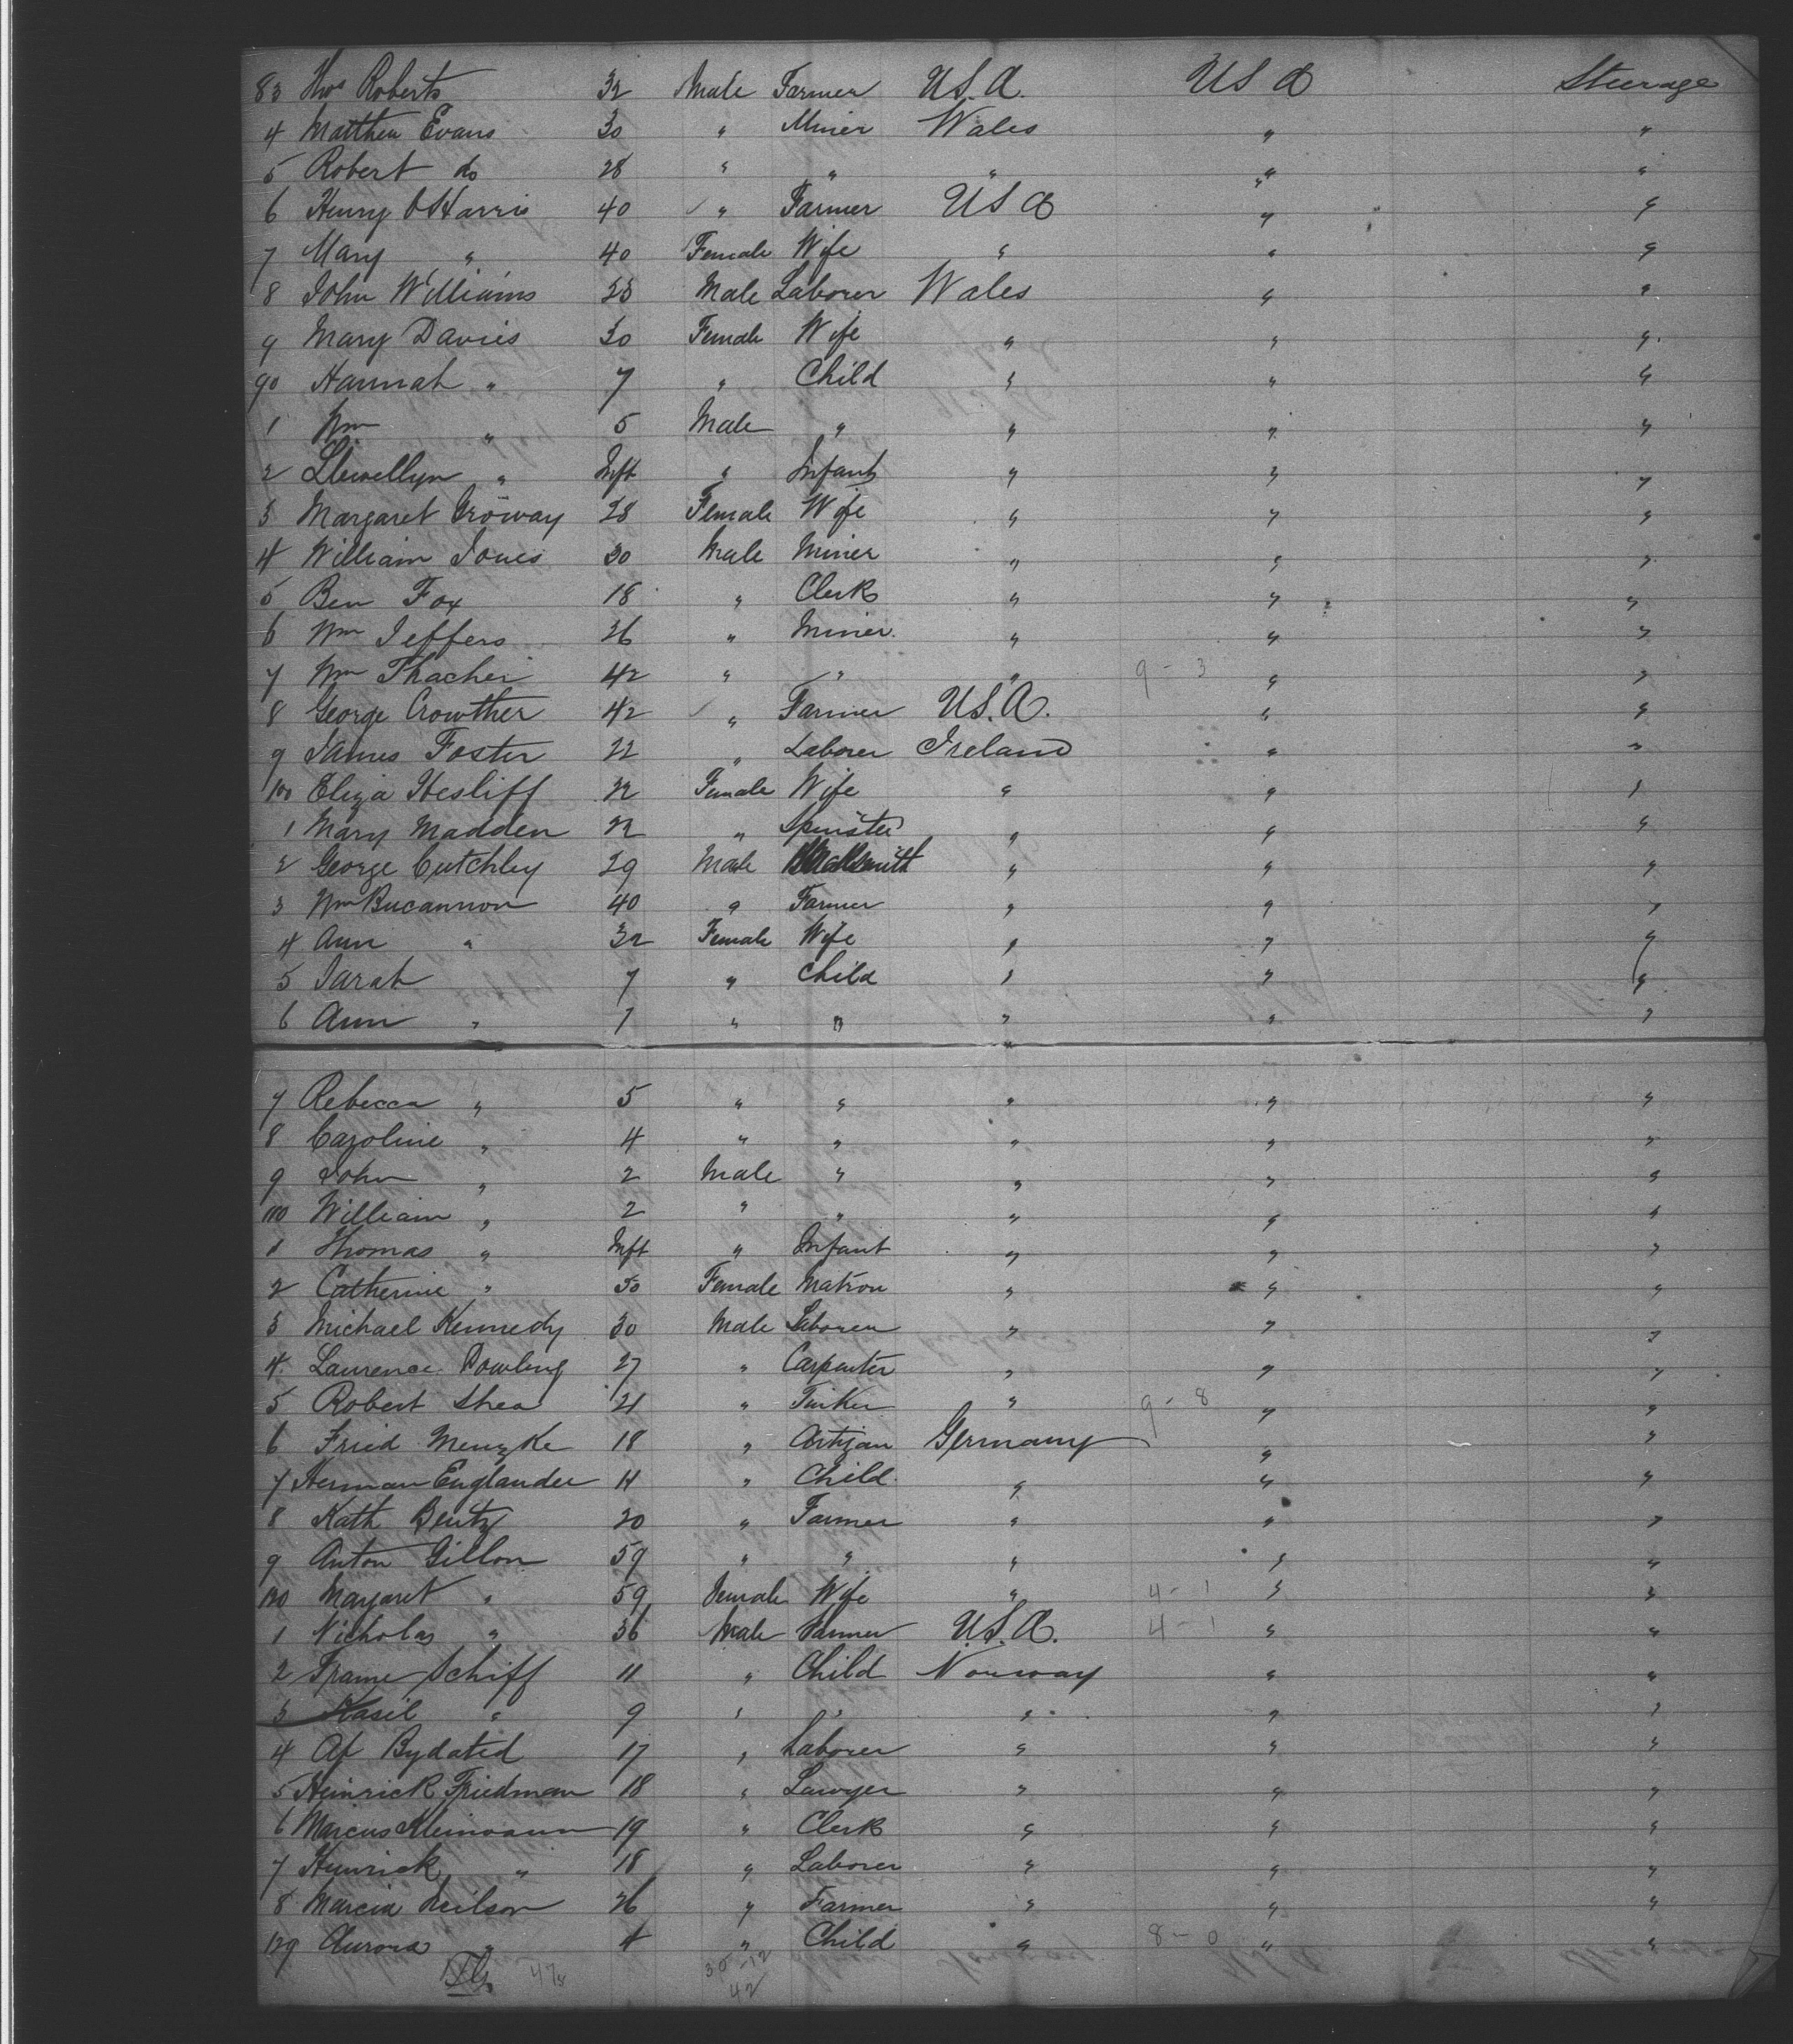 83 Thos Roberts 32 Male Farmer U.S.A. USA Steerage
4 Matthew Evans 30 " Miner Wales " "
5 Robert do 28 " " " " "
6 Henry O Harris 40 " Farmer USA " "
7 Mary " 40 Female Wife " " "
8 John Williams 23 Male Laborer Wales " "
9 Mary Davies 30 Female Wife " " "
90 Hannah " 7 " Child " " "
1 Wm " 5 Male " " " "
2 Llewellyn " Inft " Infant " " "
3 Margaret 28 Female Wife " " "
4 William Jones 30 Male Miner " " "
5 Ben Fox 18 " Clerk " " "
6 Wm Jeffers 26 " Miner " " "
7 Wm Thacher 42 " " " 9-3 " "
8 George Crowther 42 " Farmer U.S.A. " "
9 James Foster 22 " Laborer Ireland " "
100 Eliza Hesliff 22 Female Wife " " "
1 Mary Madden 22 " Spinster " " "
2 George Cutchley 29 Male Blacksmith " " "
3 Wm Bucannon 40 " Farmer " " "
4 Ann " 32 Female Wife " " "
5 Sarah 7 " Child " " "
6 Ann " 7 " " " " "
7 Rebecca " 5 " " " " "
8 Caroline " 4 " " " " "
9 John " 2 Male " " " "
110 William " 2 " " " " "
1 Thomas " Inft " Infant " " "
2 Catherine " 50 Female Matron " " "
3 Michael Kennedy 30 Male Laborer " " "
4 Laurence Dowling 27 " Carpenter " " "
5 Robert Shea 21 " Tinker " 9-8 " "
6 Fried Menzke 18 " Artizan Germany " "
7 Herman Englander 11 " Child " " "
8 Kath Bentz 20 " Farmer " " "
9 Anton Gillon 59 " " " " "
120 Margaret " 59 Female Wife " 4-1 " "
1 Nicholas " 36 Male Farmer U.S.A. 4-1 " "
2 Schiff 11 " Child Norway " "
3 Kasil " 9 " " " " "
4 Af Bydated 17 " Laborer " " "
5 Heinrick Friedman 18 " Lawyer " " "
6 Marcus Kleinmann 19 " Clerk " " "
7 Henrick " 18 " Laborer " " "
8 Marcia Neilson 26 " Farmer " " "
129 Aurora " 4 " Child " 8-0 " "
30-12
42